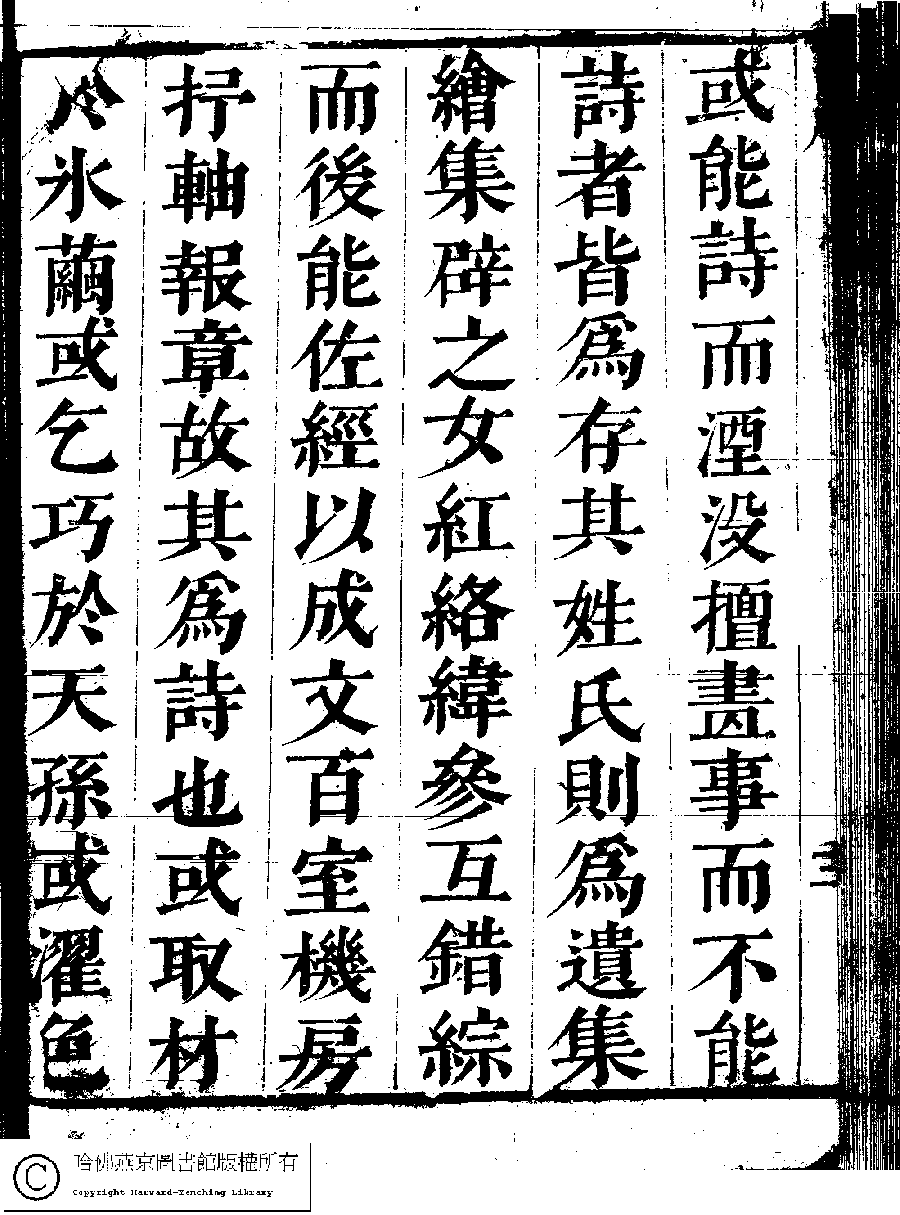 或能詩而湮没擅畫事而不能
詩者皆爲存其姓氏則爲遺集
繪集辟之女紅絡緯參互錯綜
而後能佐經以成文百室機房
抒軸報章故其爲詩也或取材
冷氷繭或乞巧於天孫或濯色
三
哈佛燕京圖書館版權所有
Copyright Harvard-Yenching Library